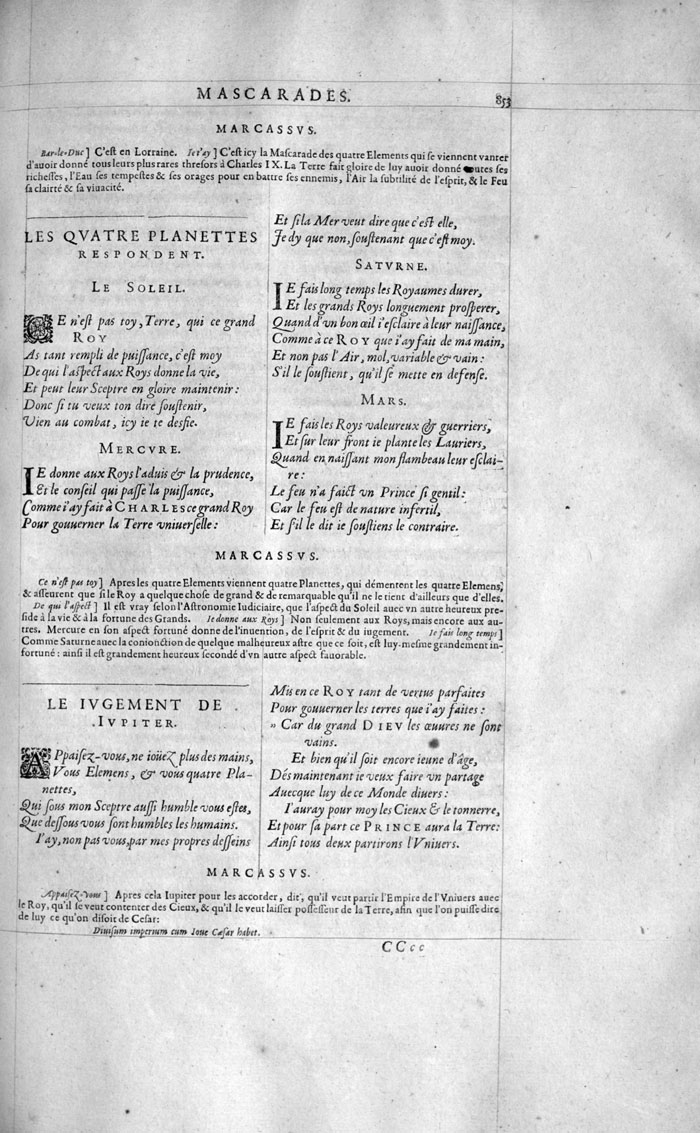 MASCARADES. 853
MARCASSVS.
Bar-le-Duc] C'est en Lorraine. Ie t'ay] C'est icy la Mascarade des quatre Elements qui se viennent vanter
d'auoir donné tous leurs plus rares thresors à Charles IX. La Terre fait gloire de luy auoir donné toutes ses
richesses, l'Eau ses tempestes & ses orages pour en battre ses ennemis, l'Air la subtilité de l'esprit, & le Feu
sa clairté & sa viuacité.
LES QVATRE PLANETTES
RESPONDENT.
LE SOLEIL.
CE n'est pas toy, Terre, qui ce grand
ROY
As tant rempli de puissance, c'est moy
De qui l'aspect aux Roys donne la vie,
Et peut leur Sceptre en gloire maintenir:
Donc si tu veux ton dire soustenir,
Vien au combat, icy ie te desfie.
MERCVRE.
IE donne aux Roys l'aduis & la prudence,
Et le conseil qui passe la puissance,
Comme i'ay fait à CHARLES ce grand Roy
Pour gouuerner la Terre vniuerselle:
Et si la Mer veut dire que c'est elle,
Je dy que non, soustenant que c'est moy.
SATVRNE.
IE fais long temps les Royaumes durer,
Et les grands Roys longuement prosperer,
Quand d'vn bon œil i'esclaire à leur naissance,
Comme à ce ROY que i'ay fait de ma main,
Et non pas l'Air, mol, variable & vain:
S'il le soustient, qu'il se mette en defense.
MARS.
IE fais les Roys valeureux & guerriers,
Et sur leur front ie plante les Lauriers,
Quand en naissant mon flambeau leur esclai-
re:
Le feu n'a faict vn Prince si gentil:
Car le feu est de nature infertil,
Et s'il le dit ie soustiens le contraire.
MARCASSVS.
Ce n'est pas toy] Apres les quatre Elements viennent quatre Planettes, qui démentent les quatre Elemens,
& asseurent que si le Roy a quelque chose de grand & de remarquable qu'il ne le tient d'ailleurs que d'elles.
De qui l'aspect] Il est vray selon l'Astronomie Iudiciaire, que l'aspect du Soleil auec vn autre heureux pre-
side à la vie & à la fortune des Grands. Ie donne aux Roys] Non seulement aux Roys, mais encore aux au-
tres. Mercure en son aspect fortuné donne de l'inuention, de l'esprit & du iugement. Ie fais long temps]
Comme Saturne auec la conionction de quelque malheureux astre que ce soit, est luy-mesme grandement in-
fortuné: ainsi il est grandement heureux secondé d'vn autre aspect fauorable.
LE IVGEMENT DE
IVPITER.
APpaisez-vous, ne ioüez plus des mains,
Vous Elemens, & vous quatre Pla-
nettes,
Qui sous mon Sceptre aussi humble vous estes,
Que dessous vous sont humbles les humains.
I'ay, non pas vous, par mes propres desseins
Mis en ce ROY tant de vertus parfaites
Pour gouuerner les terres que i'ay faites:
» Car du grand DIEV les œuures ne sont
vains.
Et bien qu'il soit encore ieune d'âge,
Dés maintenant ie veux faire vn partage
Auecque luy de ce Monde diuers:
I'auray pour moy les Cieux & le tonnerre,
Et pour sa part ce PRINCE aura la Terre:
Ainsi tous deux partirons l'Vniuers.
MARCASSVS.
Appaisez-vous] Apres cela Iupiter pour les accorder, dit, qu'il veut partir l'Empire de l'Vniuers auec
le Roy, qu'il se veut contenter des Cieux, & qu'il le veut laisser possesseur de la Terre, afin que l'on puisse dire
de luy ce qu'on disoit de Cesar:
Diuisum imperium cum Ioue Cæsar habet.
CCcc